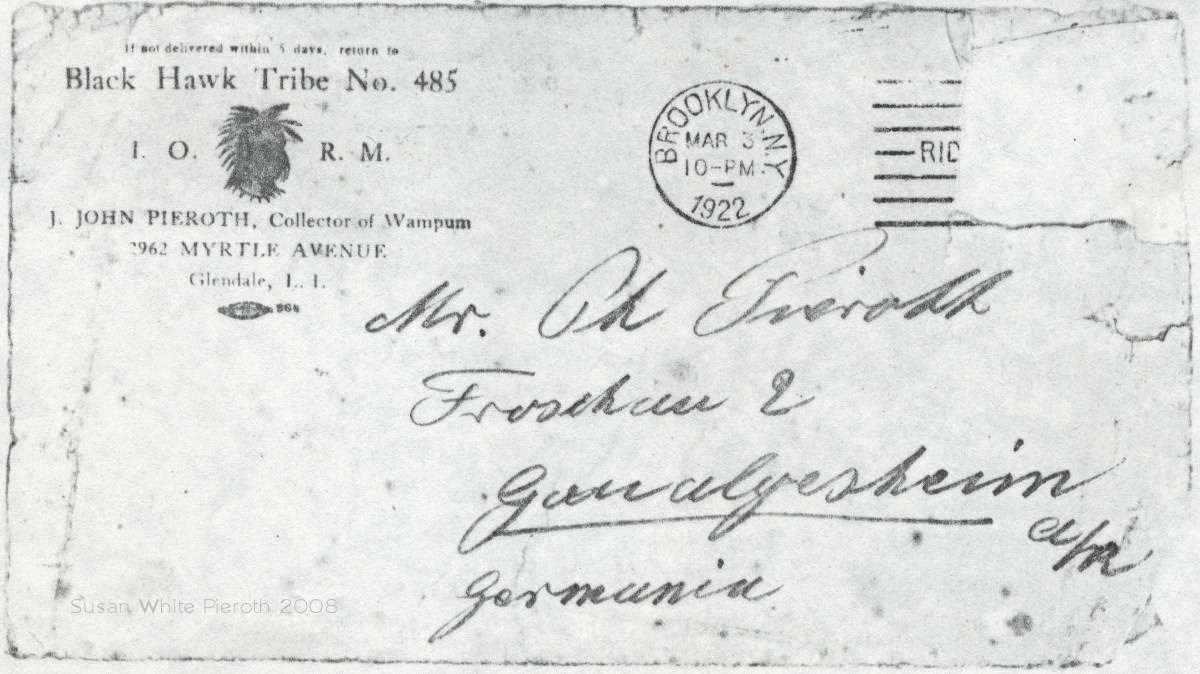 If not delivered within 5 days, return to
Black Hawk Tribe No. 485
I. O. R. M.
J. JOHN PIEROTH, Collector of Wampum
2962 MYRTLE AVENUE
Glendale, L. I.
BROOKLYN, N.Y.
MAR 3
10-PM
1922
RID
Mr. Ph Pieroth
Froschau 2
Gaualgesheim
a/R
Germania
Susan White Pieroth 2008